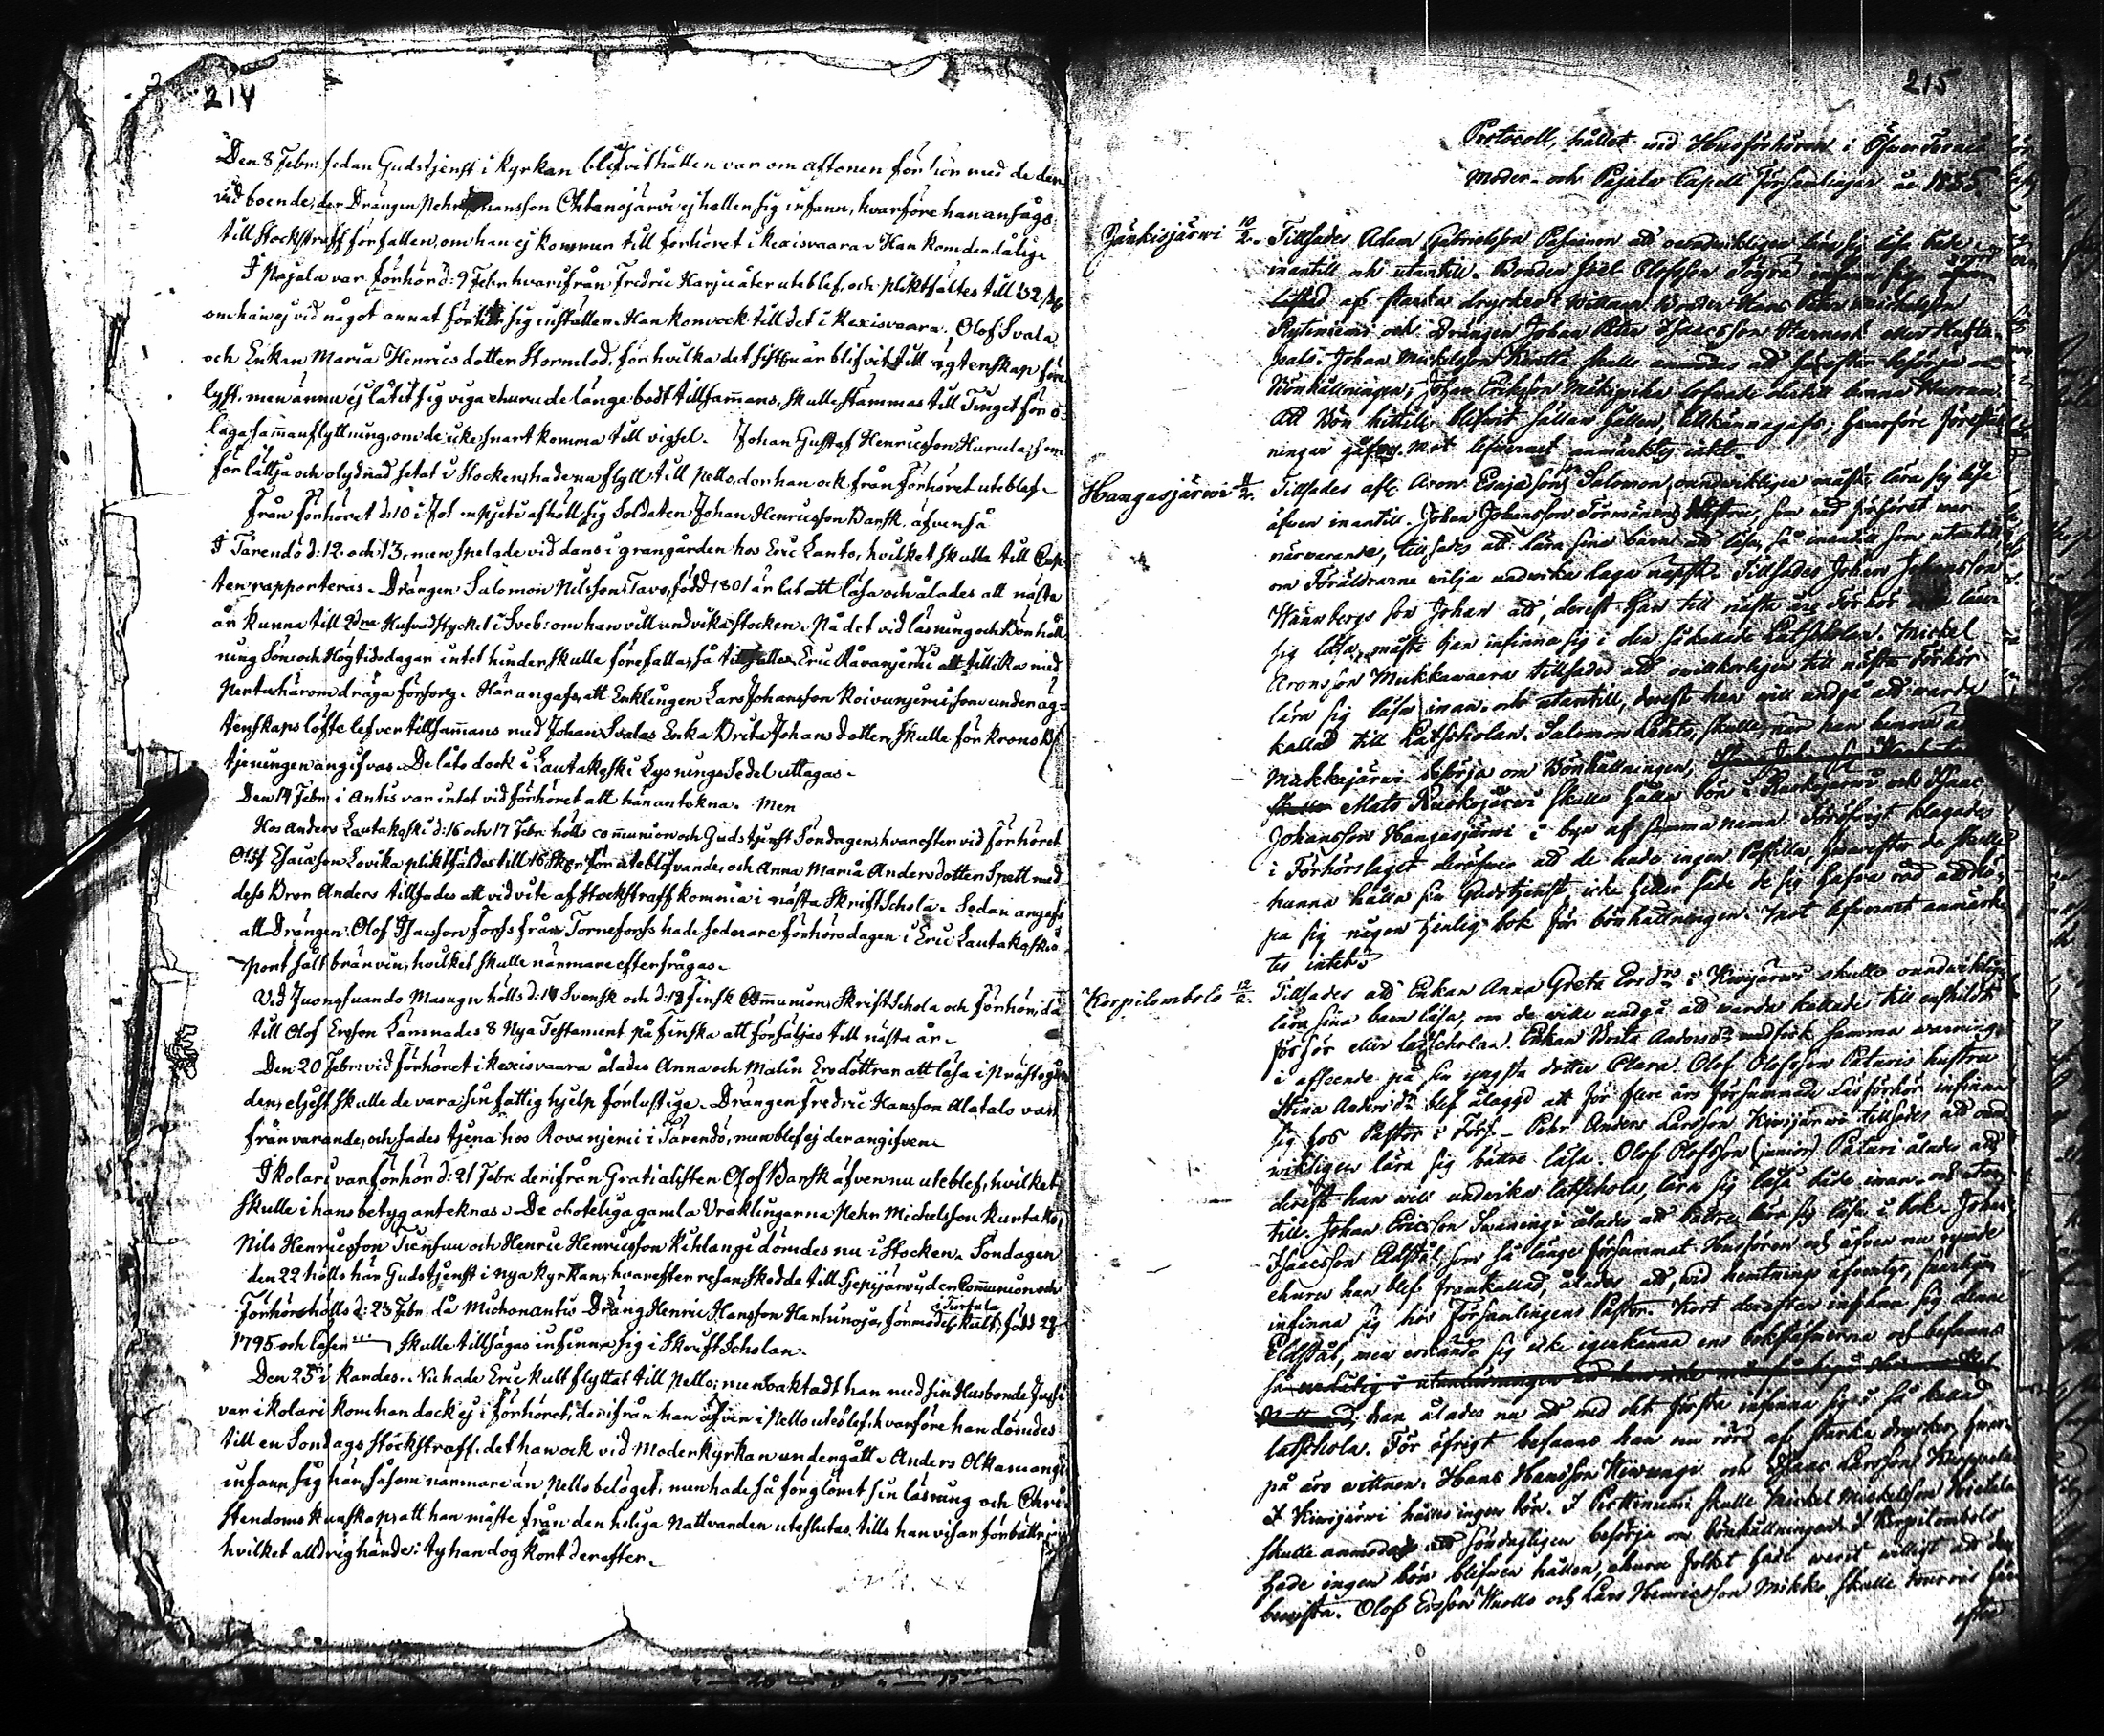 214
Den 8 Febr: sedan Gudstjenst i kyrkan blifvit hållen var om aftonen förhör med de der
vid boende, der Drängen Pehr Ohtanajärvi ej hällen sig infann, hvarföre han ansågs
till Stockstraff förfallen, om han ej kommer till förhöret i Kexisvaara. Han kom den dålige
I Pajala var förhör d: 9 Febr hvarifrån Fredric Harju åter uteblef, och pliktfältes till 32 sk
om han ej vid något annat förhör sig inställer. Han kom ock till det i Kexisvaara. Olof Svala
och Enkan Maria Henricsdotter Stormlod, för hvilka det sistl. år blifvit till ägtenskap
lyst, men ännu ej låtit sig viga ehuru de länge bodt tillsammans, skulle stämmas till Tinget för o-
laga sammanflyttning, om de icke snart komma till vigsel. Johan Gustaf Henricsson Hurula, som
för lättja och olydnad setat i Stocken, hade na flytt till Pello, der han ock från förhöret uteblef.
Från förhöret d: 10 i afhöll sig Soldaten Johan Henricsson Barsk, äfvenså
I Tärendö d: 12. och 13, men spelade vid dans i grangården hos Eric Lanto, hvilket skulle till Cap-
ten rapporteras. Drängen Salomon Nilsson Tavo, född 1801 är lat att läsa och ålades att nästa
år kunna till 2dra Hufvudstycket i Sveb: om han vill undvika Stocken. På det vid läsning och Bönhåll-
ning Sön- och Högtidsdagar intet hinder skulle förefalla, så Eric Råvanjemi att tillika med
Pertu härom draga försorg. Här angafs, att Enklingen Lars Johansson Koivunjemi, som under äg-
tenskapslöfte lefver tillsammans med Johan Svalas Enka Brita Johansdotter, skulle för Krono
tjeningen angifvas. De läto dock i Lautakoski Lysnings Sedel uttagas.
Den 14 Febr i Antis var intet vid förhöret att här antekna. Men
Hos Anders Lautakoski d: 16 och 17 Febr. hölls communion och Gudstjenst Söndagen, hvarefter vid förhöret
Olof Esaiasson Lovika pliktfäldes till 16 Sk för uteblifvande, och Anna Maria Andersdotter Spett med
dess Bror Anders tillsades att vid vite af Stockstraff komma i nästa Skriftschola. Sedan angafs
att Drängen Olof Isacsson Forss från Torneforss hade sednare förhörsdagen i Eric Lautakoskis
port sålt bränvin, hvilket skulle närmare efterfrågas.
Vid Juongsuando Masugn hölls d: 18 Svensk och d: 19 Finsk Communion, Skriftschola och förhör, då
till Olof Ersson lämnades 8 Nya Testament på Finska att försäljas till nästa år.
Den 20 Febr: vid förhöret i Kexisvaara ålades Anna och Malin Ersdöttrar att läsa i Prästegår-
den, eljest skulle de vara sin fattighjelp förlustige. Drängen Fredric Hansson Alatalo var
frånvarande, och sades tjena hos Rovanjemi i Tärendö, men blef ej der angifven.
I Kolari var förhör d: 21 Febr. derifrån Gratialisten Olof Barsk äfven nu uteblef, hvilket
skulle i hans betyg anteknas. De oboteliga gamla Vräklingarna Pehr Michelsson Kurtako,
Nils Henricsson Tiensuu och Henric Henricsson Kihlangi dömdes nu i Stocken. Söndagen
den 22 hölls här Gudstjenst i nya kyrkan, hvarefter resan skedde till Sjeppijärvi, der Communion och
Förhör hölls d: 23 Febr. då Michonantis Dräng Henric Hansson Hantunoja, förmodel. Kult, född 28
Turtula
1795 och läser skulle tillsägas infinna sig i Skrift Scholan.
Den 25 i Kardis. Nu hade Eric Kult flyttat till Pello; men oaktadt han med sin Husbonde Jussi
var i Kolari kom han dock ej i förhöret, derifrån han äfven i Pello uteblef, hvarföre han dömdes
till en Söndags Stockstraff, det han ock vid Moderkyrkan undergått. Anders Olkamangi
infann sig här, såsom närmare än Pello beläget; men hade så förglömt sin läsning och Chri-
stendomskunskap, att han måste från den heliga Nattvarden uteslutas, tills han visar förbättring
hvilket alldrig hände: ty han dog kort derefter.
215
Protocoll, hållet vid Husförhören i Öfver Torneå
Moder- och Pajala Capell Församlingar år 1835
Jänkisjärwi 10/2. Tillsades Adam Gabrielsson Pasainen att oundwikligen lära sig läsa både
inantill och utantill. Bonden Joel Olofsson Töyrä infann sig
af starka drycker. Bonden Hans Petter Michelsson
Rytiniemi och Drängen Johan Petter Isacsson Starnest eller Hufta-
pals. Johan Mickelsson Kenttä skulle anmodas att härefter besörja om
Bönhållningen; Johan Ericsson Mäkipirka lofwade likaså
Att Bön hittills blifwit sällan hållen, tillkännagafs; hwarföre Föreställ-
ningar gåfwos. Mot lefwernet anmärktes intet.
Hangasjärwi 11/2. Tillsades afl. Aron Esajassons Son Salomon, oundwikligen måste lära sig läsa
äfven inantill. Johan Johansson Törmänens Hustru, som wid förhöret war
närwarande, tillsades att lära sina barn att läsa, så inantill som utantill
om Föräldrarne wilja undwika laga näpst. Tillsades Johan Johansson
Wännbergs son Johan att, derest han till nästa års Förhör lärer
sig läsa, måste han infinna sig i den så kallade Latscholan. Mickel
Aronsson Mukkawaara tillsades att owillkorligen till nästa Förhör
lära sig läsa inan- och utantill, derest han will undgå att warda
kallad till Latscholan. Salomon Lahti, skulle, när han kunna
Mukkajärwi besörja om Bönhållningen,
Mats Ruokojärwi skulle hålla bön i Ruokojärwi och Isaac
Johansson Hangasjärwi i byn af samma namn. Föröfrigt klagades
i Förhörslaget deröfwer att de hade ingen Postilla, hwarefter de skulle
kunna hålla sin Gudstjenst icke heller sade de sig hafwa råd att kö-
pa sig någon tjenlig bok för bönhållningen. Mot lefwernet anmärk-
tes intet.
Korpilombolo 12/2. Tillsades att Enkan Anna Greta Ersdr i Kiwijärwi skulle oundwikligen
lära sina barn läsa, om de wille undgå att warda kallade till enskildt
förhör eller latscholan. Enkan Brita Andersdr undfick samma warning
i afseende på sin yngsta dotter Clara. Olof Olofsson Paturis hustru
Stina Andersdr blef ålaggd att för flere års försummade Läsförhör infinna
sig hos Pastor i Förs. Pehr Anders Larsson Kiwijärwi tillsades att ound-
wikligen lära sig bättre läsa. Olof Olofsson (junior) Paturi ålades att
derest han will undwika latschola, lära sig läsa både inan- och utan-
till. Johan Ericsson Swanengi ålades att bättre lära sig läsa i bok. Johan
Isaacsson Eldstål, som så länge försummat Husförhören och äfven nu rymde
ehuru han blef framkallad, ålades, att, wid hemtnings äfwentyr,
infinna sig hos Församlingens Pastor. Kort derefter infann sig denne
Eldstål, men wisade sig icke igenkänna ens bokstäfwerna och befanns
så
han ålades nu att med det första infinna sig i så kallad
latschola. För öfrigt befanns han nu rörd af starka drycker, hwar-
på äro wittnen. Hans Hansson Kiwinengi och Isaac Larsson
I Kiwijärwi hålles ingen bön. I Pirttiniemi skulle Mickel Mickelsson Hietala
skulle anmodas att söndagligen besörja om bönhållningen. I Korpilombolo
hade ingen bön blifwen hållen, ehuru folket hade warit willigt att den
bewista. Olof Ersson Kuolto och Lars Henricsson Mikko skulle turwis här
efter